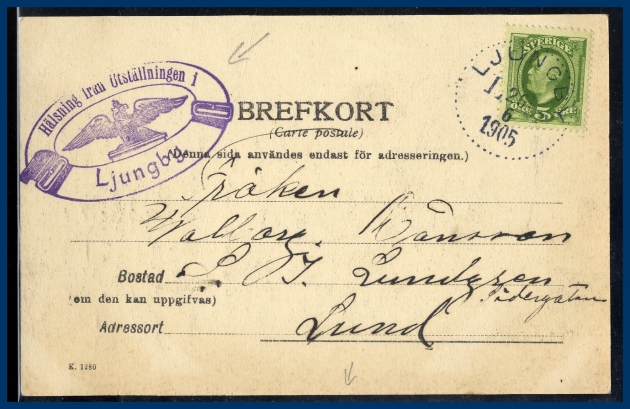 Hälsning från Utställningen i
Ljungby.
SVERIGE
5
LJUNGBY
1905
BREFKORT
(Carte postale)
(Denna sida användes endast för adresseringen.)
Fröken
Valborg
Bostad S. J. Lundgren
(om den kan uppgifvas) Södergatan
Adressort Lund
K. 1280